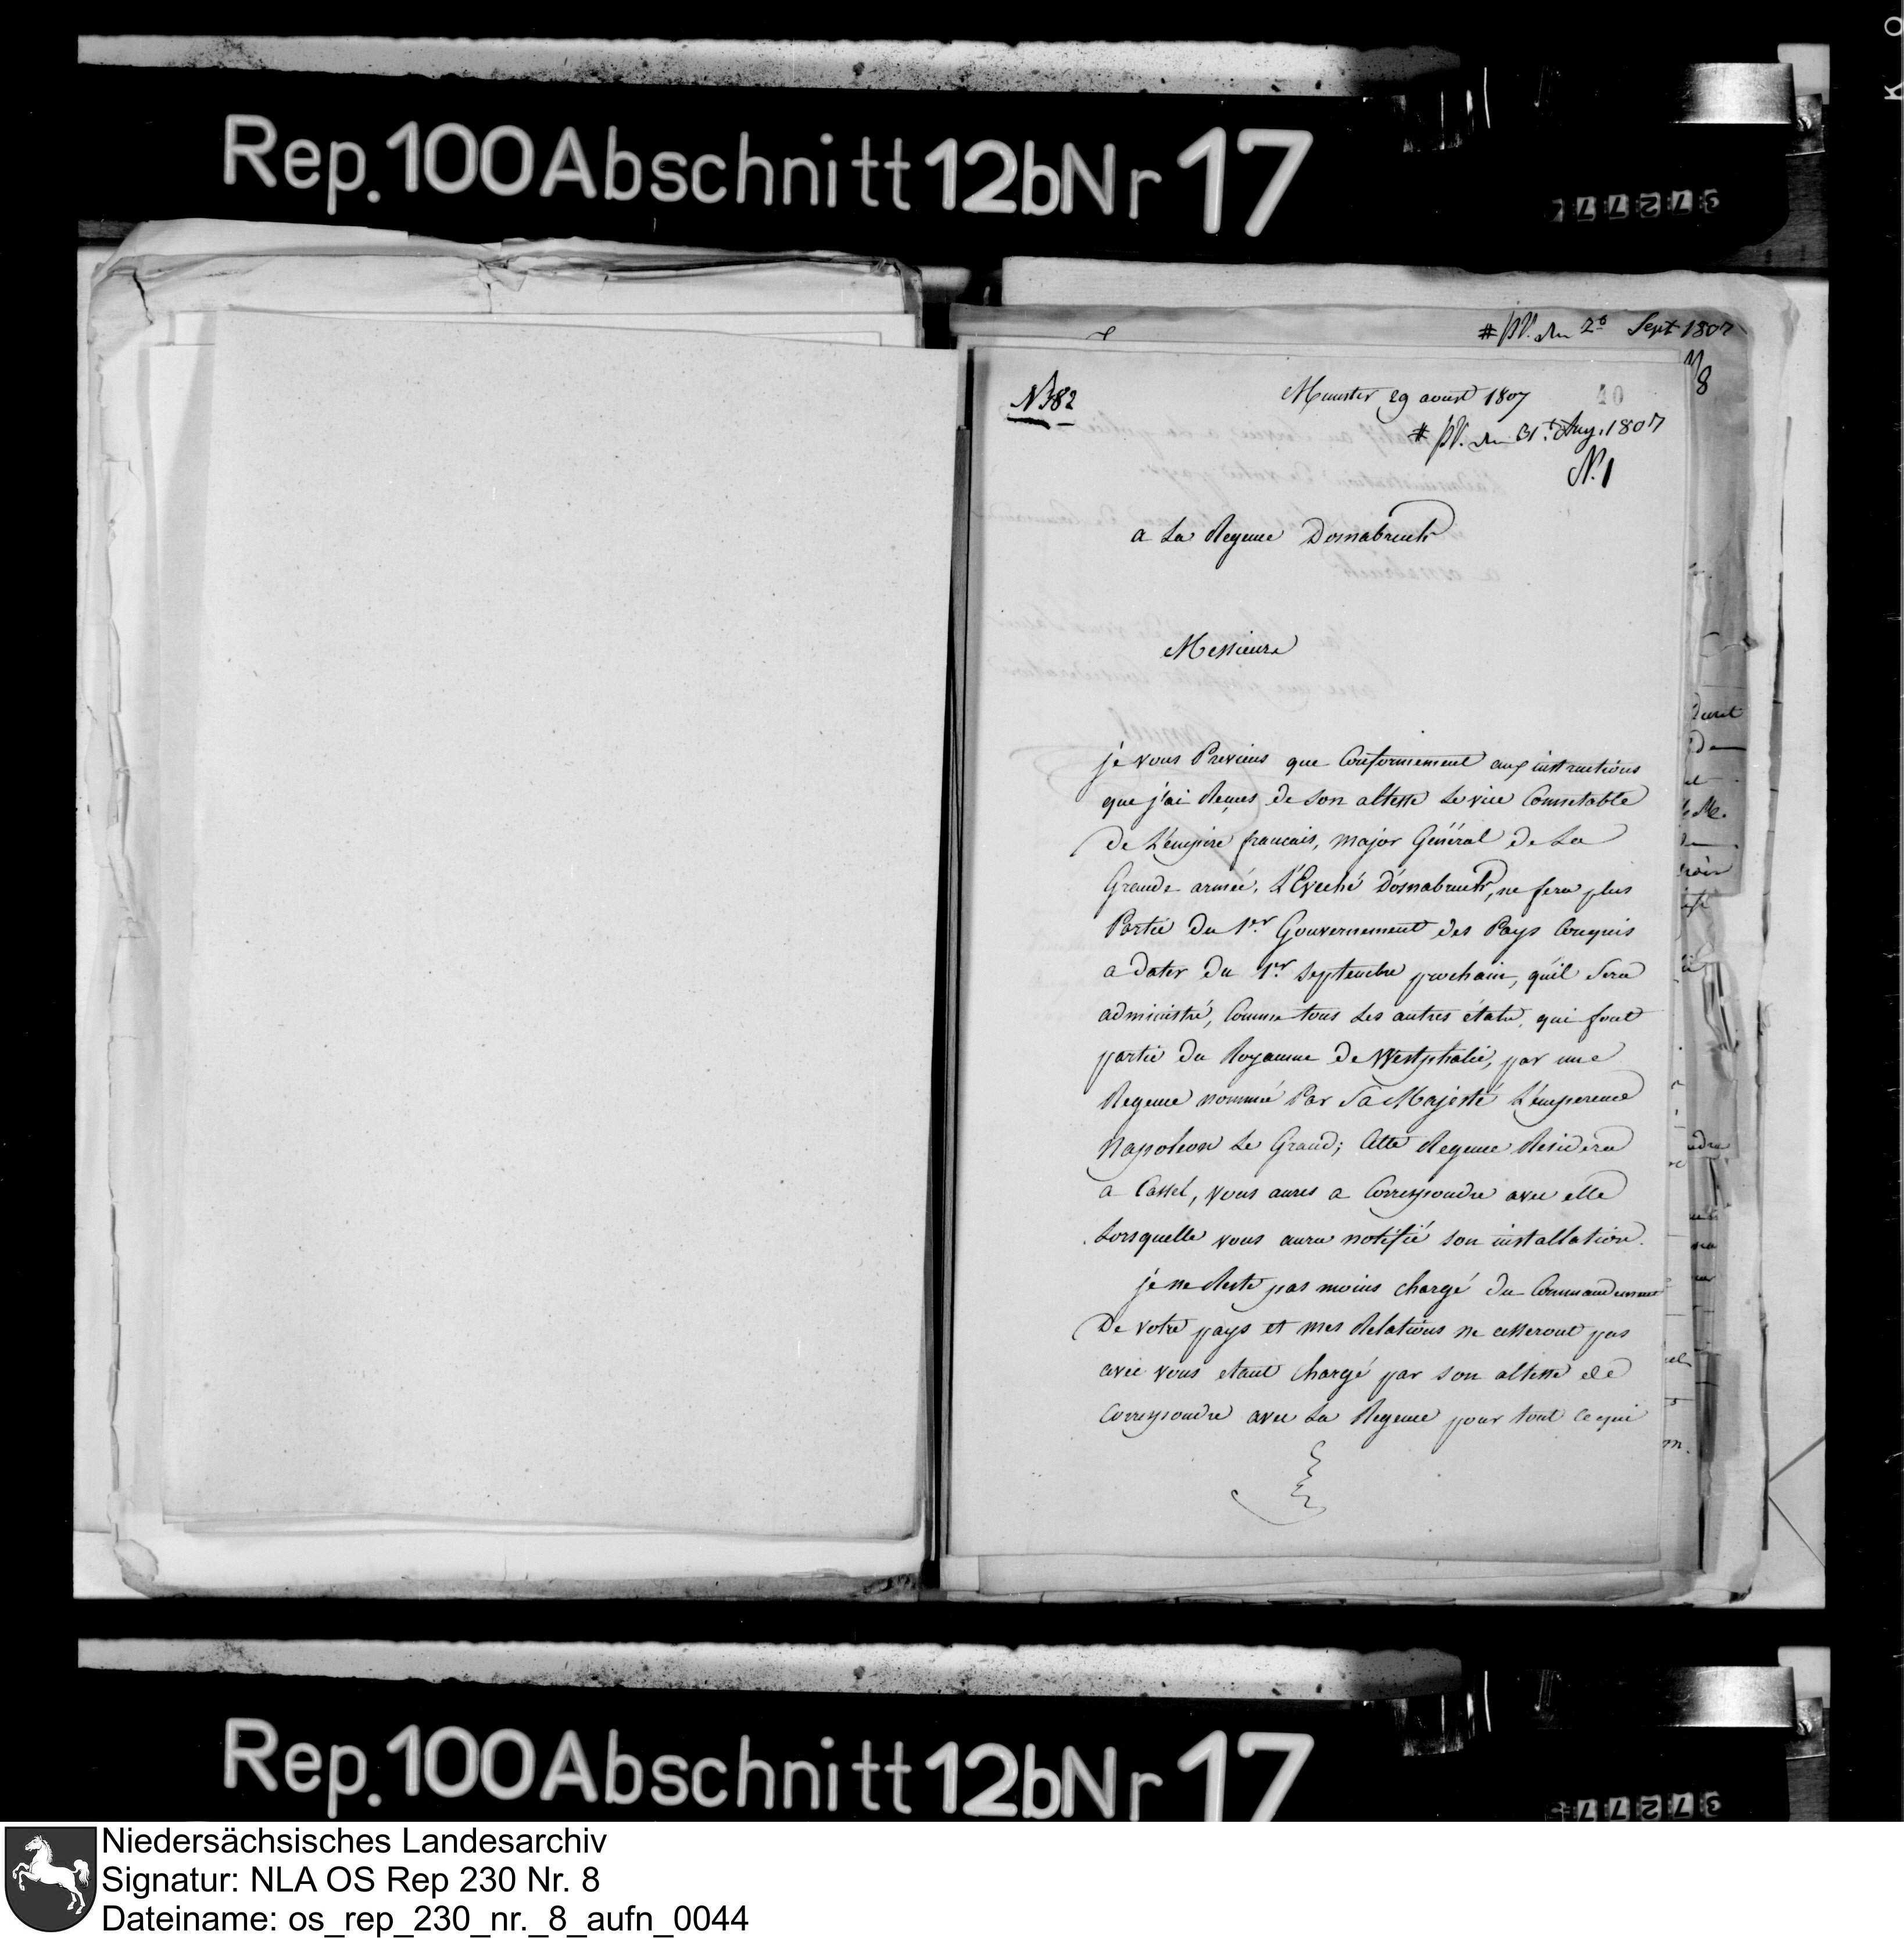 Rep.100Abschnitt12bNr17
# pV. den 2ᵗ Sept 1807
N 382
Munster 29 aoust 1807
40
8
# pV. den 31ᵗ Aug. 1807
N. 1
a La Regence Dosnabruck
Messieurs
je vous Previens que Conformement aux instructions
que j'ai Reçues de son altesse Le vice Connetable
De L'empire francais, major Général de La
Grande armée, L'Eveché D'osnabruck, ne fera plus
Partie du 1er. Gouvernement des Pays Conquis
a Dater du 1er. septembre prochain, qu'il sera
administré, Comme tous Les autres états, qui font
partie du Royaume de Westphalie, par une
Regence nommée Par Sa Majesté L'empereur
Napoleon Le Grand; Cette Regence Residera
a Cassel, vous aures a Correspondre avec elle
Lorsquelle vous aura notifié son installation.
je ne Reste pas moins chargé du Commandement
De votre pays et mes Relations ne cesseront pas
avec vous etant chargé par son altesse de
Correspondre avec La Regence pour tout ce qui
Rep.100Abschnitt12bNr17
Niedersächsisches Landesarchiv
Signatur: NLA OS Rep 230 Nr. 8
Dateiname: os_rep_230_nr._8_aufn_0044